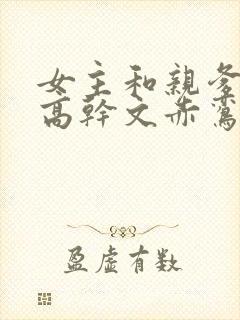 女主和親爹
高幹文赤鸞
盈虛有数